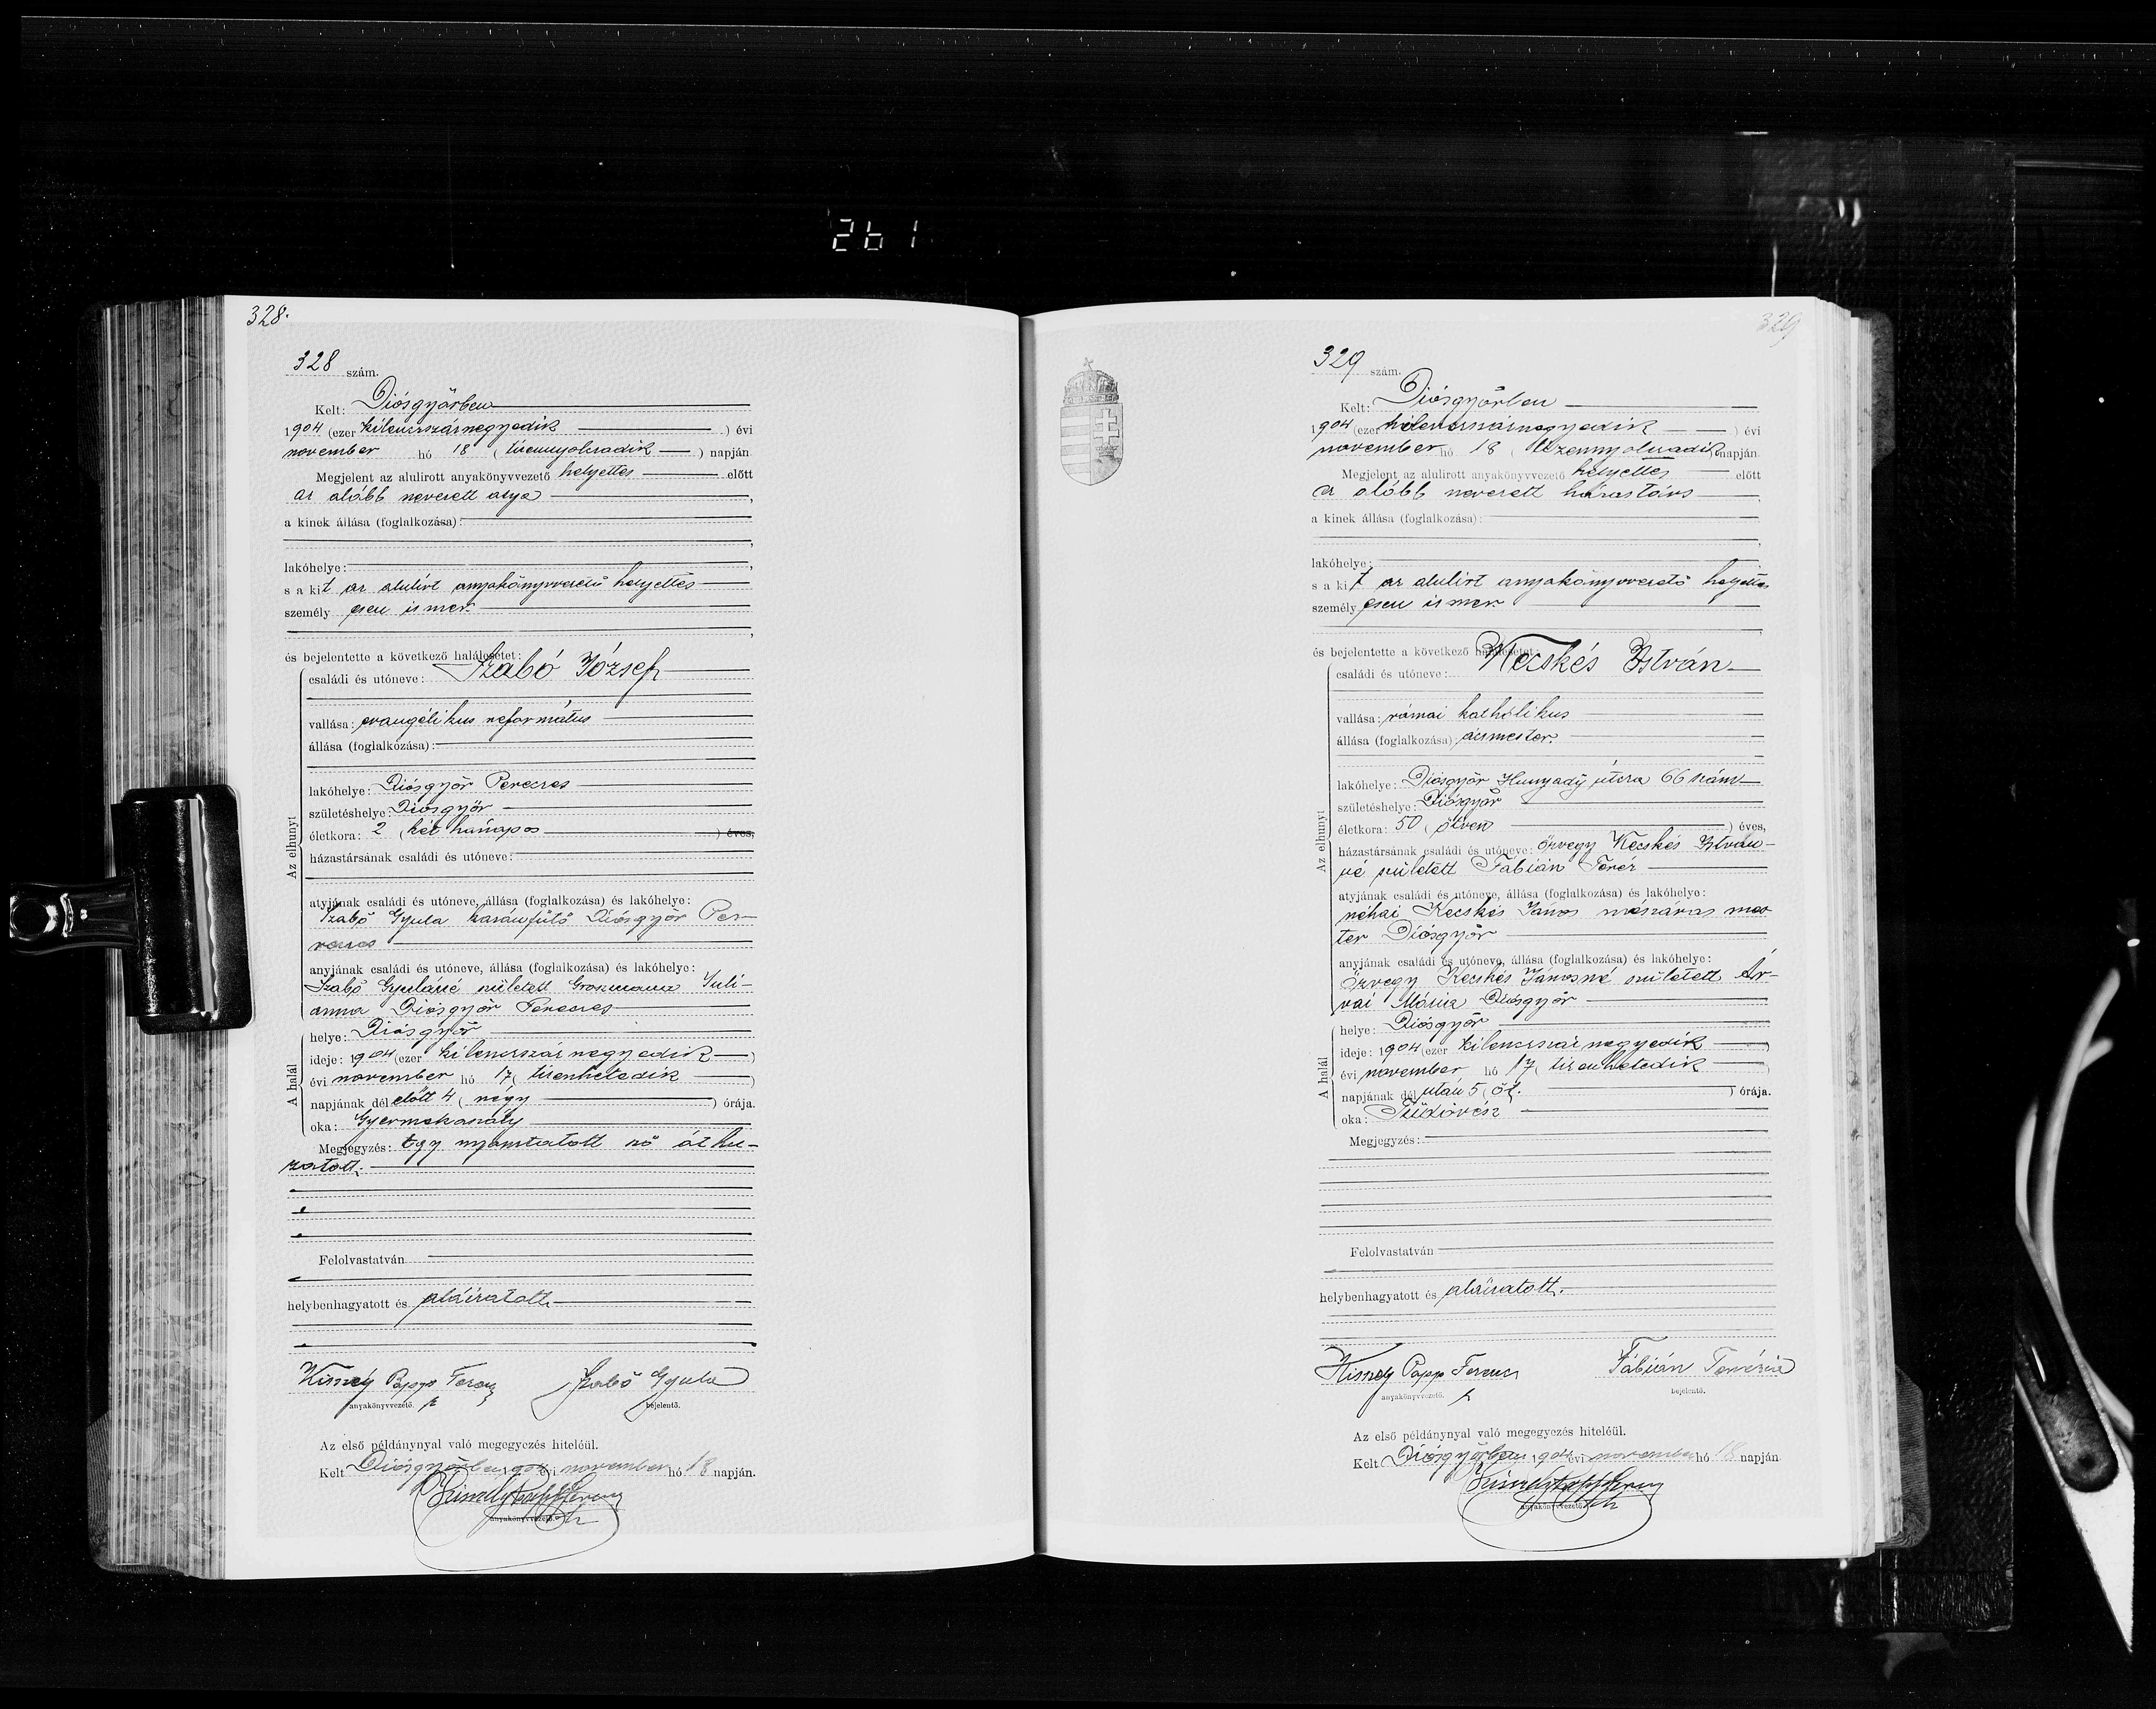 261
328.
328 szám.
Kelt: Diósgyőrben
1904 (ezer kilencszáznegyedik ) évi
november hó 18 ( tizennyolczadik ) napján
Megjelent az alulirott anyakönyvvezető helyettes előtt
az alább nevezett atya ,
a kinek állása (foglalkozása):
,
lakóhelye: ,
s a kit az alulirt anyakönyvvezető helyettes
személy esen ismer.
,
és bejelentette a következő halálesetet:
családi és utóneve: Szabó József
vallása: evangélikus református
állása (foglalkozása):
lakóhelye: Diósgyőr Pereczes
születéshelye: Diósgyőr
életkora: 2 ( két hónapos ) éves,
házastársának családi és utóneve:
Az elhunyt
atyjának családi és utóneve, állása (foglalkozása) és lakóhelye:
Szabó Gyula kazánfűtő Diósgyőr Per-
reczes
anyjának családi és utóneve, állása (foglalkozása) és lakóhelye:
Szabó Gyuláné született Groszmann Juli-
anna Diósgyőr Pereczes
A halál
helye: Diósgyőr
ideje: 1904 (ezer kilenczszáz negyedik )
évi november hó 17 ( tizenhetedik )
napjának dél előtt 4 ( négy ) órája.
oka: Gyermekaszály
Megjegyzés: Egy nyomtatott szó át hu-
zatott.
Felolvastatván
helybenhagyatott és aláiratott.
Kisszely Papp Ferencz Szabó Gyula
anyakönyvvezető. h bejelentő.
Az első példánynyal való megegyezés hiteléül.
Kelt Diósgyőrben 1904 évi november hó 18 napján.
Kisszely Papp Ferencz
anyakönyvvezető. h
329
329 szám.
Kelt: Diósgyőrben
1904 (ezer kilenczszáznegyedik ) évi
november hó 18 ( tizennyolczadik ) napján
Megjelent az alulirott anyakönyvvezető helyettes előtt
az alább nevezett házastárs ,
a kinek állása (foglalkozása):
,
lakóhelye:
s a kit az alulirt anyakönyvvezető helyettes
személy esen ismer.
,
és bejelentette a következő halálesetet:
családi és utóneve: Kecskés István
vallása: római katholikus
állása (foglalkozása) ácsmester.
lakóhelye: Diósgyőr Hunyady útcza 66 szám
születéshelye: Diósgyőr
életkora: 50 ( ötven ) éves,
Az elhunyt
házastársának családi és utóneve: özvegy Kecskés István-
né született Fábián Teréz
atyjának családi és utóneve, állása (foglalkozása) és lakóhelye:
néhai Kecskés János mészáros mes-
ter Diósgyőr
anyjának családi és utóneve, állása (foglalkozása) és lakóhelye:
Özvegy Kecskés Jánosné született Ár-
vai Mária Diósgyőr
A halál
helye: Diósgyőr
ideje: 1904 (ezer kilenczszáz negyedik )
évi november hó 17 ( tizenhetedik )
napjának dél után 5 ( öt. ) órája.
oka: Tüdővész
Megjegyzés:
Felolvastatván
helybenhagyatott és aláiratott.
Kisszely Papp Ferencz Fábián Terézia
anyakönyvvezető. h bejelentő.
Az első példánynyal való megegyezés hiteléül.
Kelt Diósgyőrben 1904 évi november hó 18 napján
Kisszely Papp Ferencz
anyakönyvvezető. h